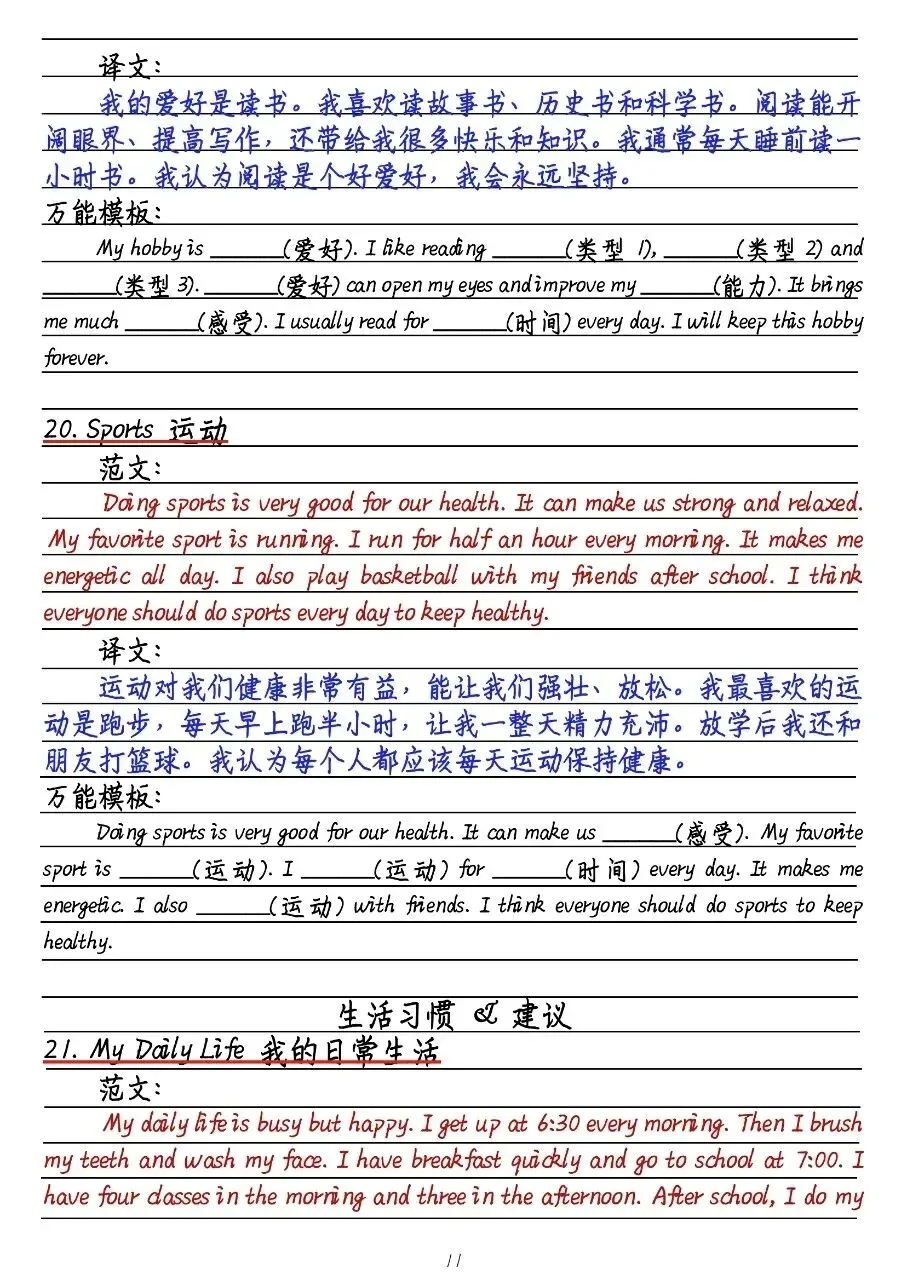 译文：
我的爱好是读书。我喜欢读故事书、历史书和科学书。阅读能开
阔眼界、提高写作，还带给我很多快乐和知识。我通常每天睡前读一
小时书。我认为阅读是个好爱好，我会永远坚持。
万能模板：
My hobby is ______(爱好). I like reading ______(类型 1), ______(类型 2) and
______(类型 3). ______(爱好) can open my eyes and improve my ______(能力). It brings
me much ______(感受). I usually read for ______(时间) every day. I will keep this hobby
forever.
20. Sports 运动
范文：
Doing sports is very good for our health. It can make us strong and relaxed.
My favorite sport is running. I run for half an hour every morning. It makes me
energetic all day. I also play basketball with my friends after school. I think
everyone should do sports every day to keep healthy.
译文：
运动对我们健康非常有益，能让我们强壮、放松。我最喜欢的运
动是跑步，每天早上跑半小时，让我一整天精力充沛。放学后我还和
朋友打篮球。我认为每个人都应该每天运动保持健康。
万能模板：
Doing sports is very good for our health. It can make us ______(感受). My favorite
sport is ______(运动). I ______(运动) for ______(时间) every day. It makes me
energetic. I also ______(运动) with friends. I think everyone should do sports to keep
healthy.
生活习惯 & 建议
21. My Daily Life 我的日常生活
范文：
My daily life is busy but happy. I get up at 6:30 every morning. Then I brush
my teeth and wash my face. I have breakfast quickly and go to school at 7:00. I
have four classes in the morning and three in the afternoon. After school, I do my
11